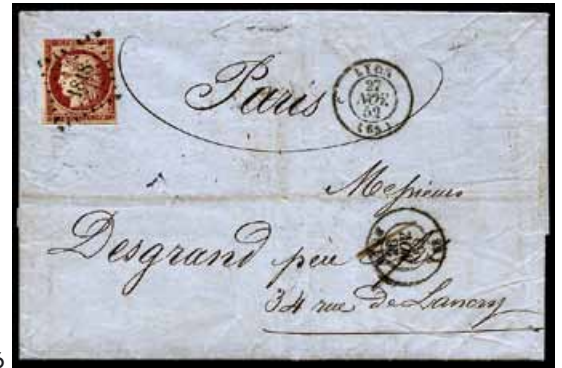 1818
Paris
LYON
27
NOV.
52
(68)
Messieurs
Desgrand père
34 rue de Lancry
6